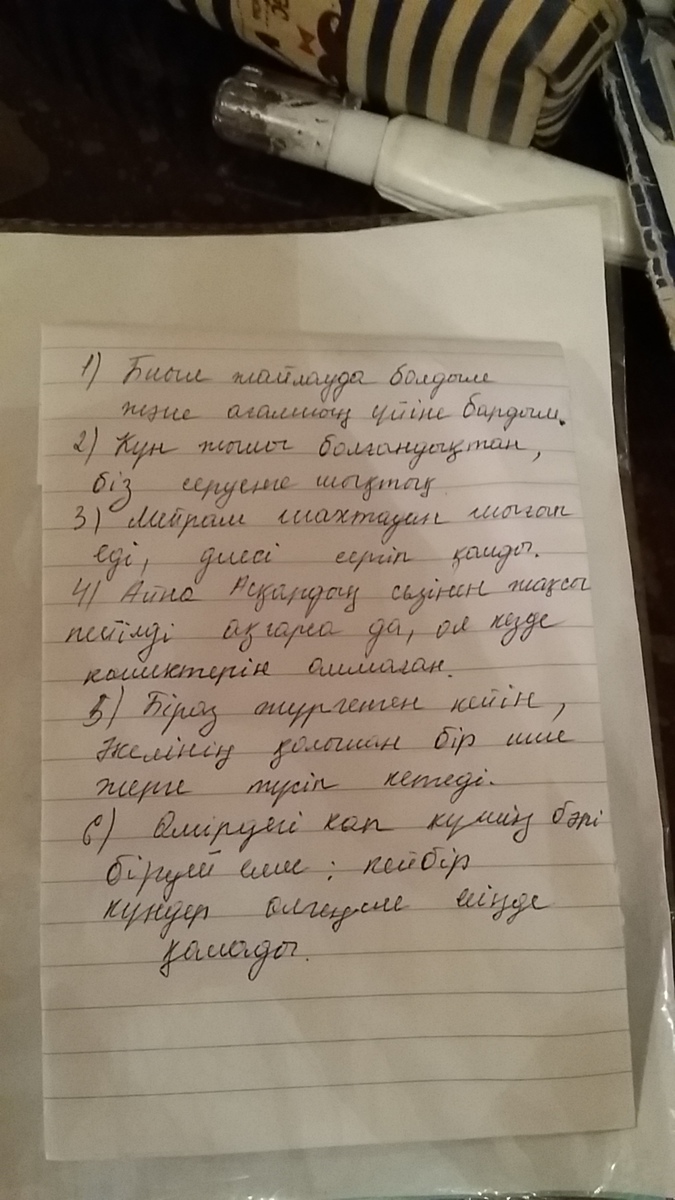 1) Биыл жайлауда болдым
және ағамның үйіне бардым.
2) Күн жылы болғандықтан,
біз серуенге шықтық
3) Мейрам шахтадан шыққан
еді, денесі сергіп қалды.
4) Айна Асқардың сөзінен жақсы
пейілді аңғарса да, ол кезде
көмектерін алмаған.
5) Біраз жүргеннен кейін,
Әкемнің қолынан бір ине
жерге түсіп кетеді.
6) Өмірдегі көп күннің бәрі
бірдей емес: кейбір
күндер өлгенше есіңде
қалады.